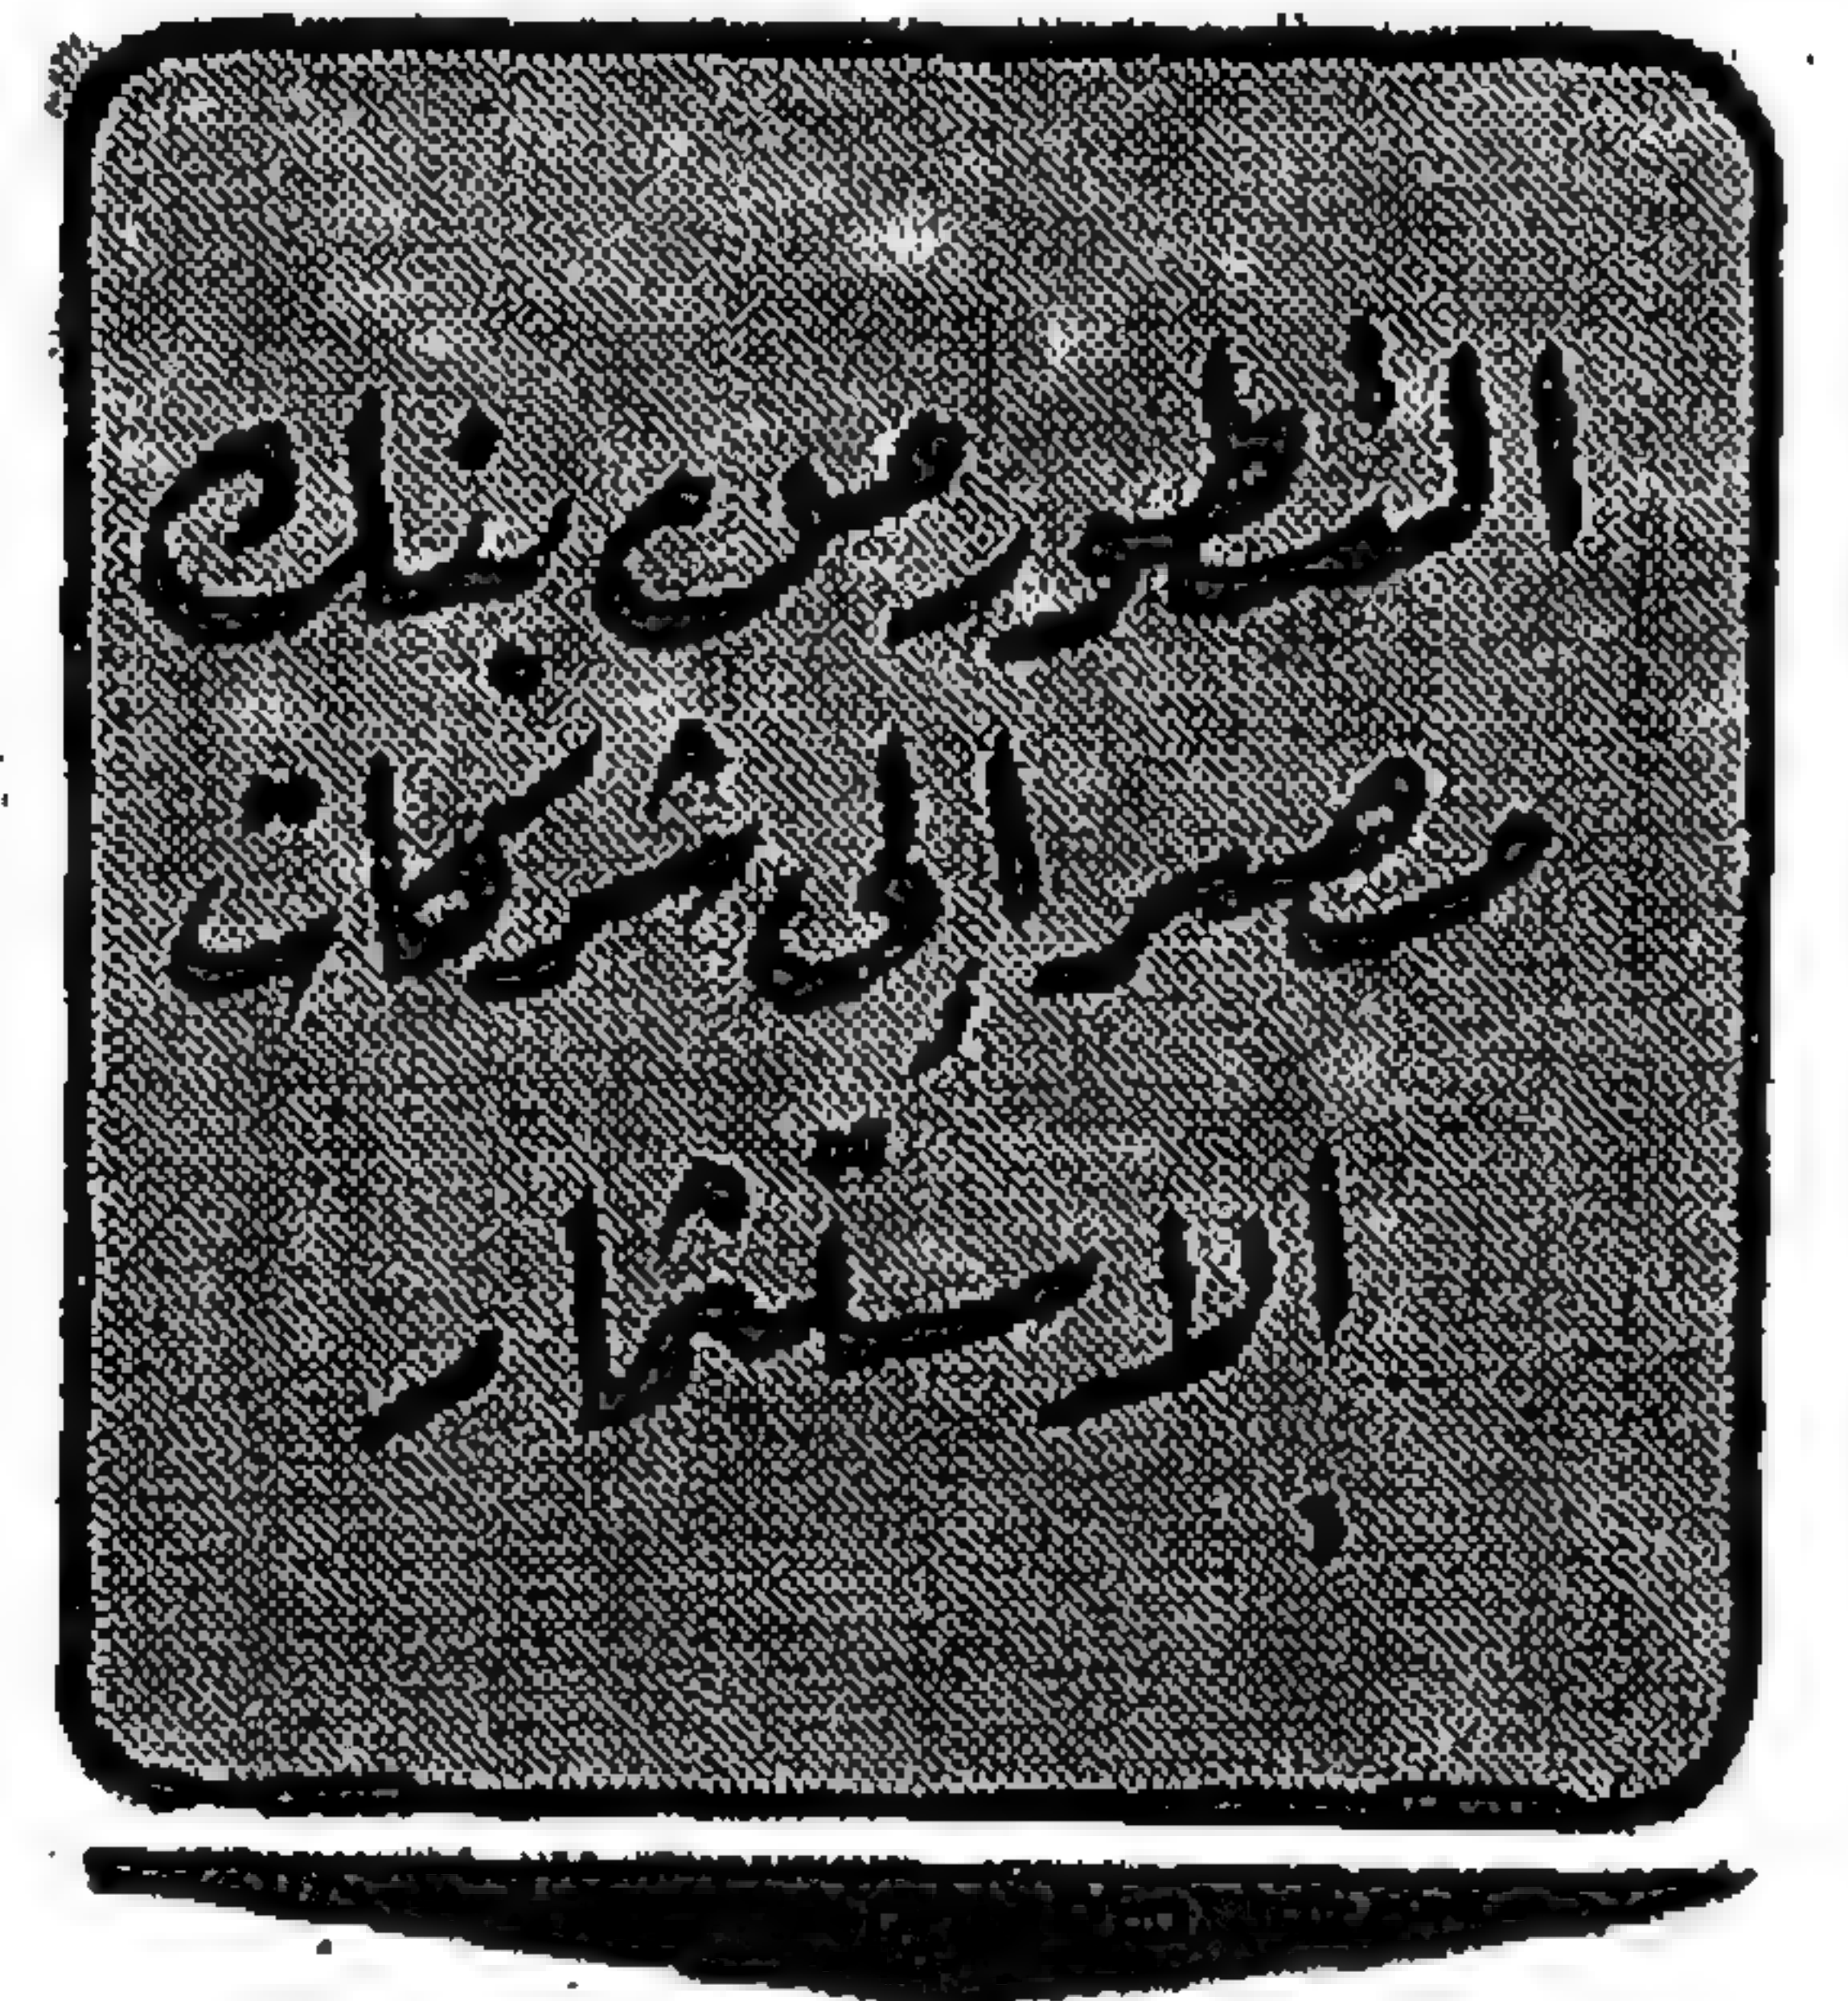 التطور من بنك
مصر إلى شركات
الاستثمار